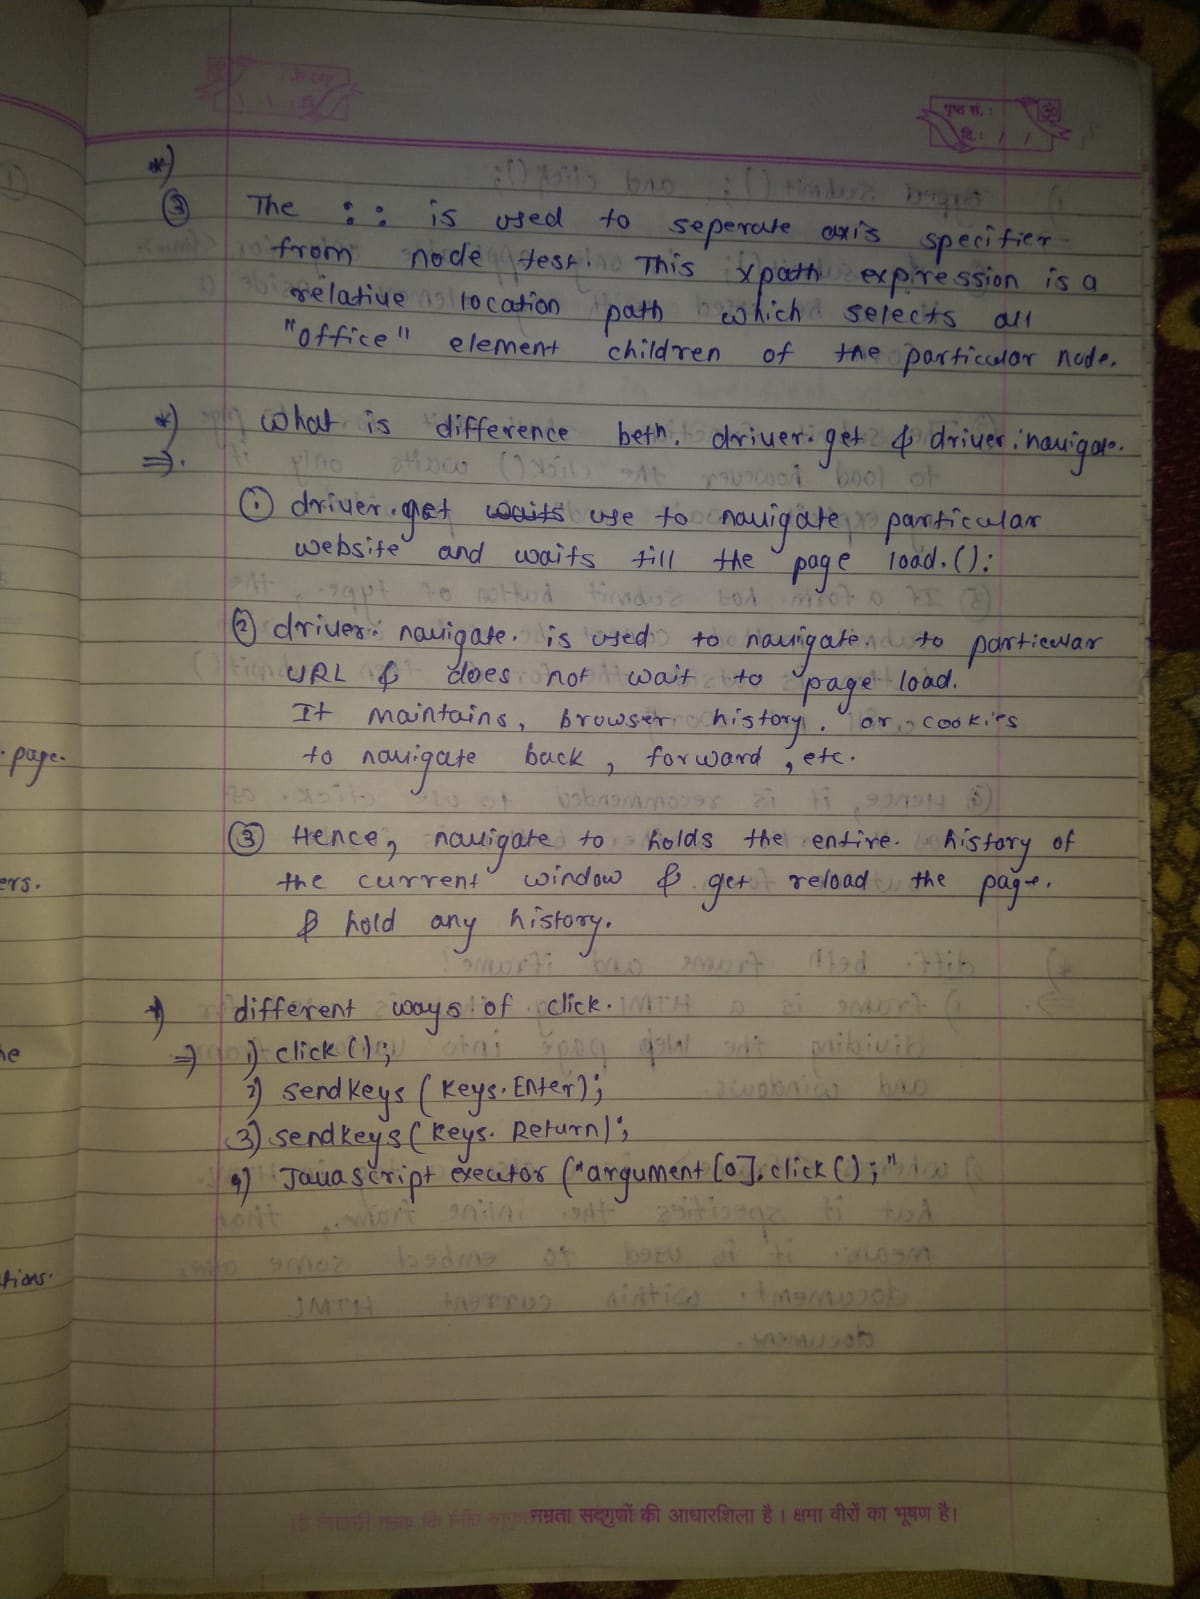 पृष्ठ सं.:
दि.: / /
*)
③ The :: is used to seperate axis specifier
from node test. This xpath expression is a
relative location path which selects all
"office" element children of the particular node.
*) What is difference betn. driver.get & driver.navigate.
⇒.
① driver.get waits use to navigate particular
website and waits till the page load.():
② driver. navigate. is used to navigate. to particular
URL & does not wait to page load.
It maintains, browser history. or cookies
to navigate back, forward, etc.
③ Hence, navigate to holds the entire. history of
the current window & get reload the page.
& hold any history.
*) different ways of click.
⇒ 1) click();
2) sendkeys (Keys.Enter);
3) sendkeys (Keys. Return);
4) Javascript executor ("argument [0].click();"
page.
ers.
he
tions.
नम्रता सद्‌गुणों की आधारशिला है। क्षमा वीरों का भूषण है।